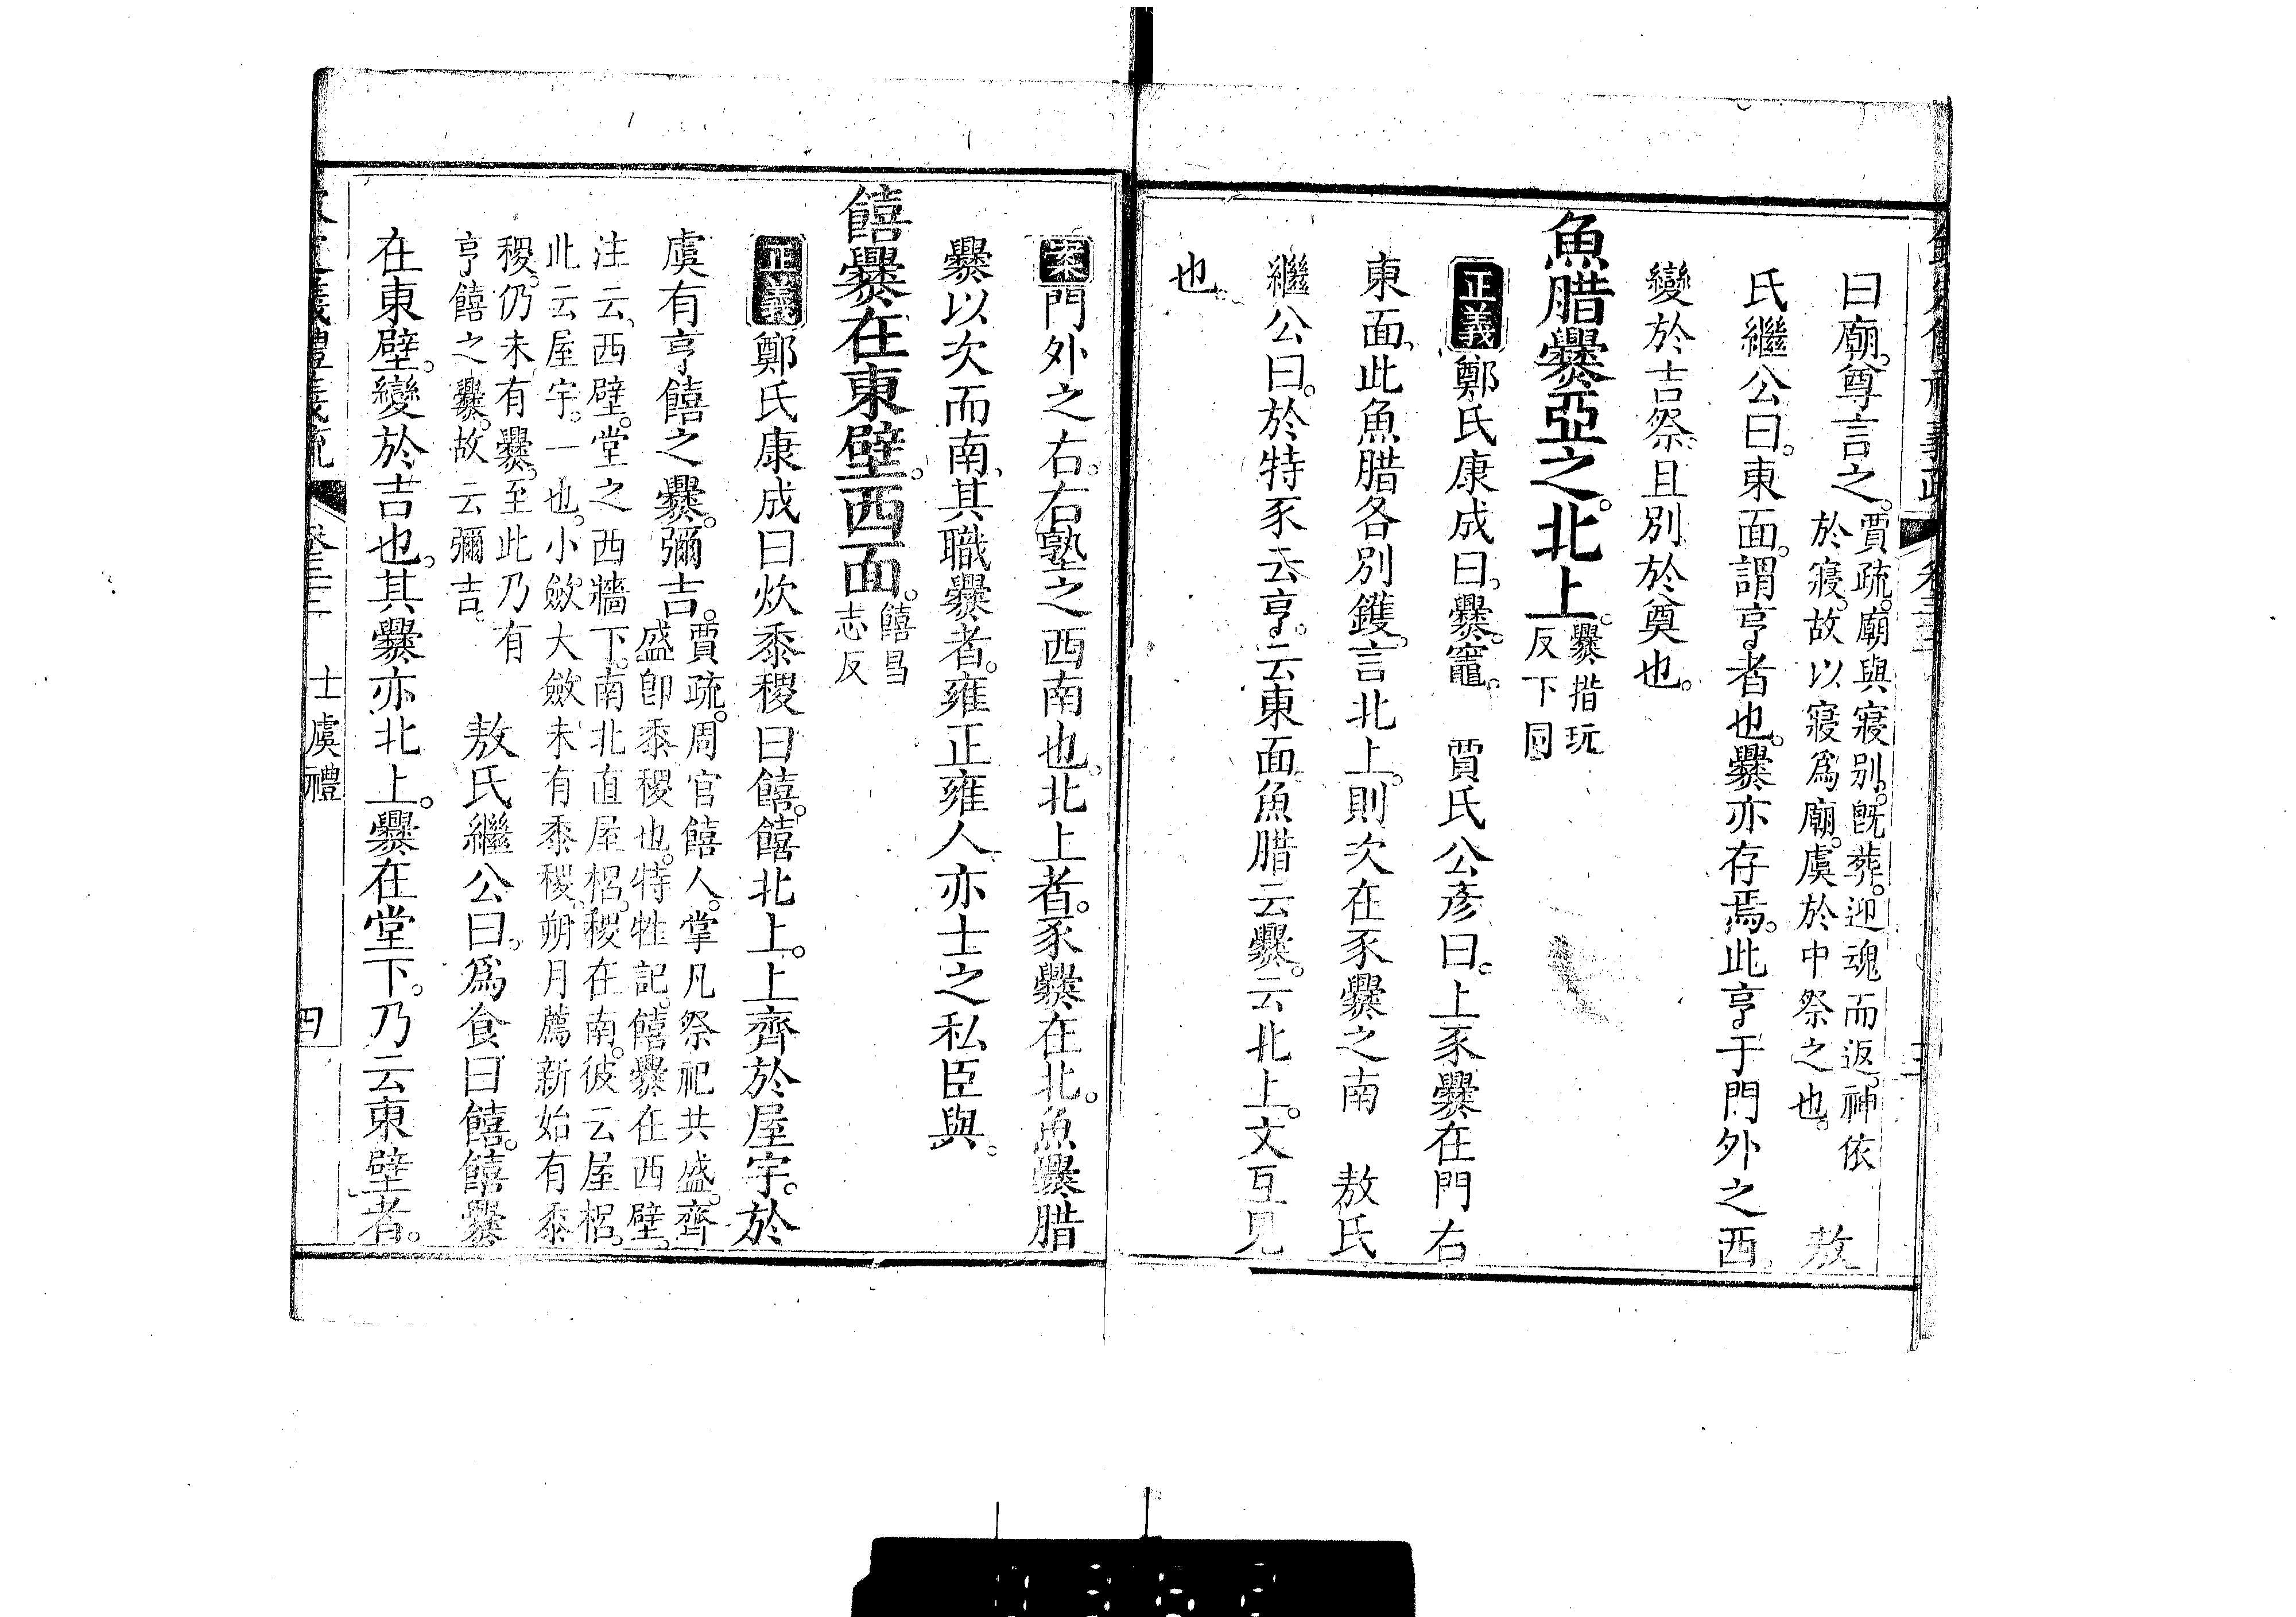 曰廟。尊言之。賈疏。廟與寢別。旣葬。迎魂而返。神依
於寢。故以寢爲廟。虞於中祭之也。 敖
氏繼公曰。東面。謂亨者也。爨亦存焉。此亨于門外之西。
變於吉祭。且別於奠也。
魚腊爨亞之。北上。爨措玩
反下同
正義鄭氏康成曰。爨。竈。 賈氏公彥曰。上豕爨在門右
東面、此魚腊各別鑊。言北上。則次在豕爨之南 敖氏
繼公曰。於特豕云亨。云東面。魚腊云爨。云北上。文互見
也。
案門外之右。右塾之西南也。北上者。豕爨在北。魚爨腊
爨以次而南、其職爨者。雍正雍人亦士之私臣與。
饎爨在東壁。西面。饎昌
志反
正義鄭氏康成曰炊黍稷曰饎。饎北上。上齊於屋宇。於
虞有亨饎之爨。彌吉。賈疏。周官饎人。掌凡祭祀共盛。齊
盛卽黍稷也。特牲記。饎爨在西壁。
注云、西壁。堂之西牆下。南北直屋梠。稷在南。彼云屋梠。
此云屋宇。一也。小斂大斂未有黍稷、朔月薦新始有黍
稷。仍未有爨。至此乃有
亨饎之爨。故云彌吉。 敖氏繼公曰。爲食曰饎。饎爨
在東壁。變於吉也。其爨亦北上。爨在堂下。乃云東壁者。
卷三十三 士虞禮 四